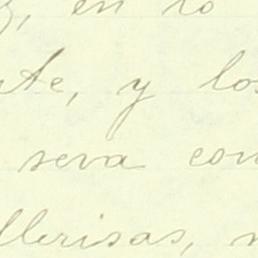 , en lo
te, y los
sera con
llerisas,